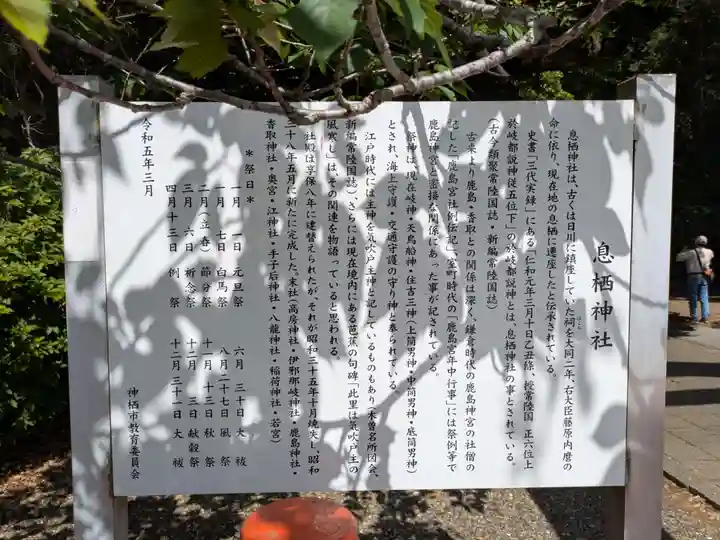 息栖神社
息栖神社は、古くは日川に鎮座していた祠を大同二年、右大臣藤原内麿の
命に依り、現在地の息栖に遷座したと伝承されている。
史書「三代実録」にある「仁和元年三月十日乙丑條、授常陸国 正六位上
於岐都説神従五位下」の於岐都説神とは、息栖神社の事とされている。
(古今類聚常陸国誌・新編常陸国誌)
古来より鹿島・香取との関係は深く、鎌倉時代の鹿島神宮の社僧の
記した「鹿島宮社例伝記」、室町時代の「鹿島宮年中行事」には祭例等で
鹿島神宮と密接な関係にあった事が記されている。
祭神は、現在岐神・天鳥船神・住吉三神(上筒男神・中筒男神・底筒男神)
とされ、海上守護・交通守護の守り神と奉られている。
江戸時代には主神を気吹戸主神と記しているものもあり(木曽名所図会、
新編常陸国誌)、さらには現在境内にある芭蕉の句碑「此里は気吹戸主の
風寒し」は、その関連を物語っていると思われる。
社殿は享保八年に建替えられたが、それが昭和三十五年十月焼失し、昭和
三十八年五月に新たに完成した。末社(高房神社・伊邪那岐神社・鹿島神社・
香取神社・奥宮・江神社・手子后神社・八龍神社・稲荷神社・若宮)
*祭日*
一月 一日 元旦祭 六月 三十日 大祓
一月 七日 白馬祭 八月二十七日 風祭
二月(立春) 節分祭 十一月 十三日 秋祭
三月 六日 祈念祭 十二月 三日 献穀祭
四月十三日 例祭 十二月 三十一日 大祓
令和五年三月
神栖市教育委員会